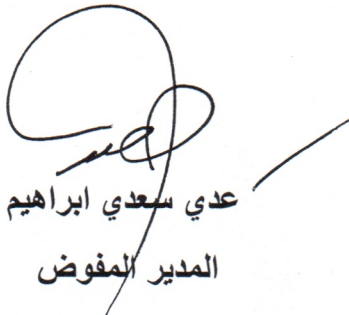 عدي سعدي ابراهيم
المدير المفوض